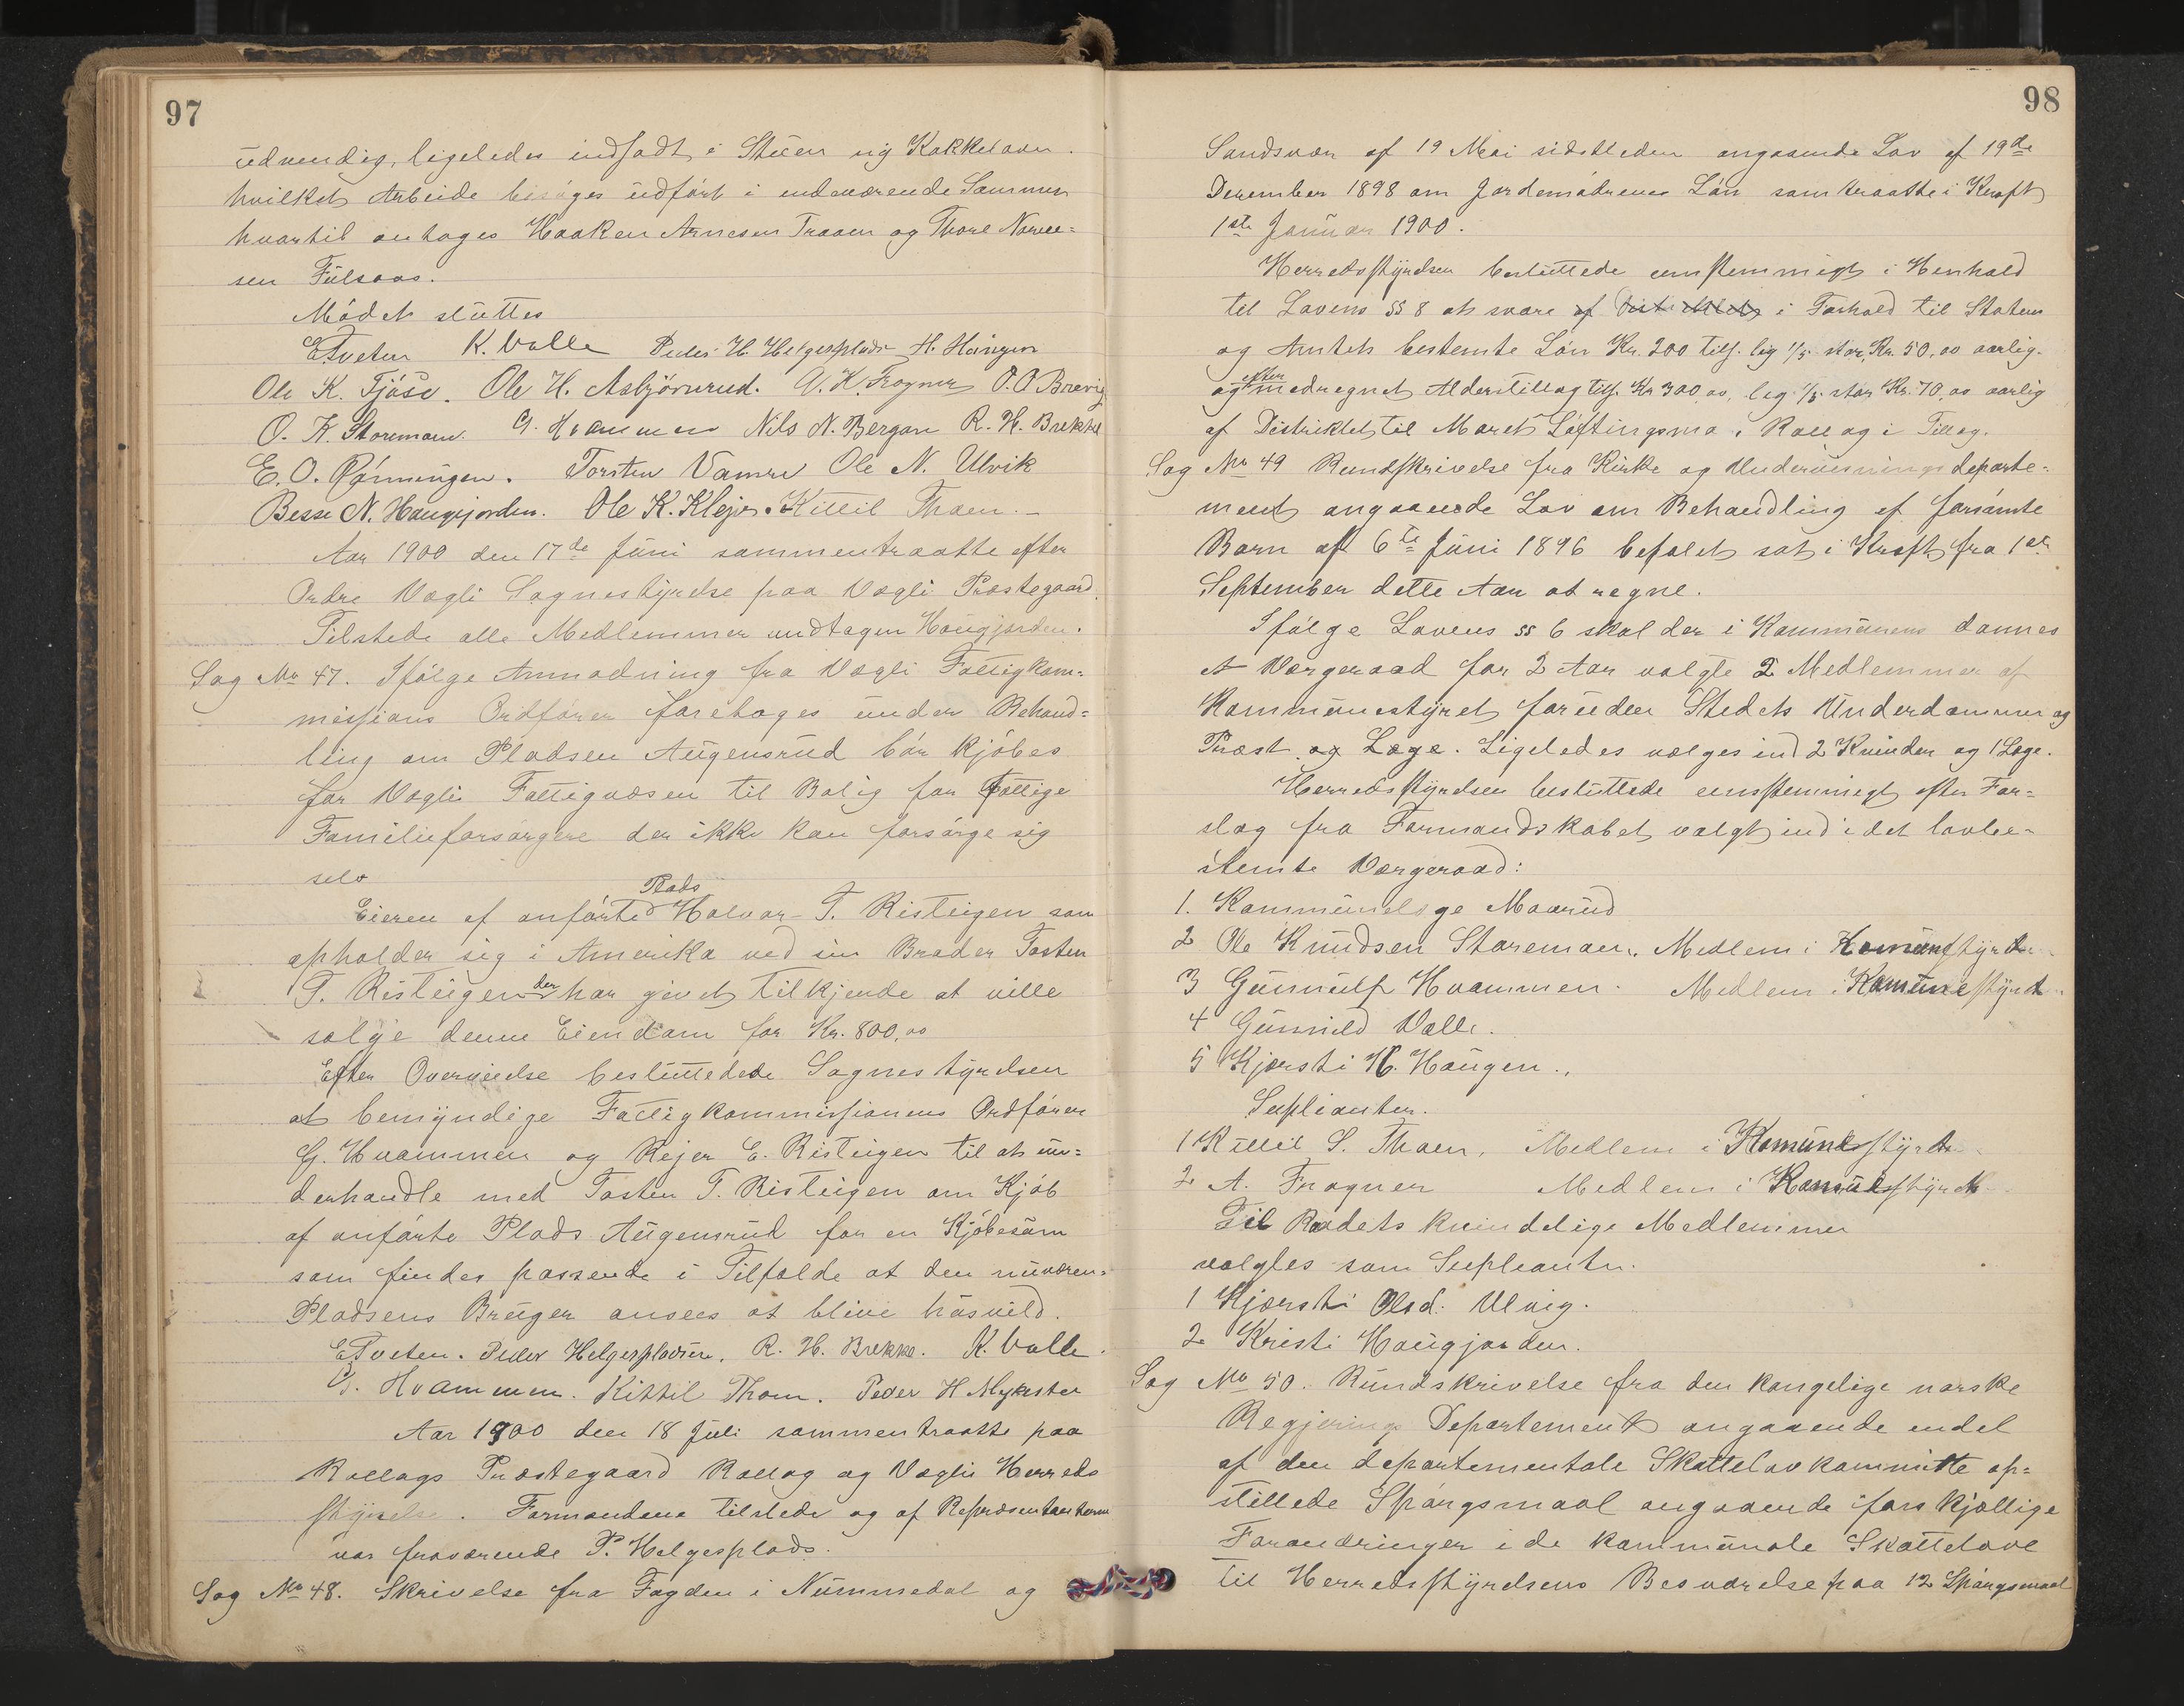 97
udvendig, ligeledes indsadt i Stuen ny Kakkelovn.
hvilket Arbeide besøges udført i indeværende Sommer
hvortil antages Haaken Arnesen Traaen og Thore
sen Fulsaas.
Mødet sluttes
E Tveten K. Valle Peder H. Helgesplads H. Haugen
Ole K. Fjøse. Ole H. Asbjørnrud. A. K. Frogner O. O Brevig
O. K. Storemoen. G. Hvammen Nils N. Bergan R. H. Brekke
E. O. Rønningen. Torsten Vamre Ole N. Ulvik
Besse N. Haugjorden. Ole K. Klejv. Kittil Thoen. –
Aar 1900 den 17de Juni sammentraatte efter
Ordre Vægli Sognestyrelse paa Vægli Præstegaard.
Tilstede alle Medlemmer undtagen Haugjorden.
Sag No 47. Ifølge Anmodning fra Vægli Fattigkom=
missions Ordfører foretages under Behand=
ling om Pladsen Augensrud bør kjøbes
for Vægli Fattigvæsen til Bolig for Fattige
Familieforsørgere der ikke kan forsørge sig
selv
Eieren af anførte Plads Halvor T. Risteigen som
opholder sig i Amerika ved sin Broder Tosten
T. Risteigen der har givet tilkjende at ville
sælge denne Eiendom for Kr. 800,00
Efter Overveielse besluttedede Sognestyrelsen
at bemyndige Fattigkommissionens Ordfører
G. Hvammen og Rejer E. Risteigen til at un=
derhandle med Tosten T. Risteigen om Kjøb
af anførte Plads Augensrud for en Kjøbesum
som findes passende i Tilfælde at den nuværen=
Pladsens Bruger ansees at blive husvild.
E Tveten. Peder Helgespladsen. R. H. Brekke. K. Valle.
G. Hvammen. Kittil Thoen. Peder H Mykstu
Aar 1900 den 18 Juli sammentraatte paa
Rollags Præstegaard Rollag og Væglis Herreds
styrelse. Formændene tilstede og af Repræsentanterne
var fraværende P. Helgesplads.
Sag No 48. Skrivelse fra Fogden i Nummedal og
98
Sandsvær af 19 Mai sidstleden angaaende Lov af 19de
Desember 1898 om Jordemødrenes Løn som traatte i Kraft
1ste Januar 1900.
Herredsstyrelsen besluttede eenstemmigt i Henhold
til Lovens §§ 8 at svare af Distriktet i Forhold til Statens
og Amtets bestemte Løn Kr. 200 tils. lig 1/5 stor Kr. 50,00 aarlig.
og efter medregnet Alderstillæg tils. Kr 300,00, lig 1/5 stor Kr. 70,00 aarlig
af Distriktet til Maret Løftingsmo i Rollag i Tillæg.
Sag No 49 Rundskrivelse fra Kirke og Undervisningsdeparte=
ment angaaende Lov om Behandling af forsømte
Børn af 6te Juni 1896 befalet sat i Kraft fra 1ste
September dette Aar at regne.
Ifølge Lovens §§ 6 skal der i Kommunens dannes
et Værgeraad for 2 Aar valgte 2 Medlemmer af
Kommunestyret foruden Stedets Underdommer og
Præst og Læge. Ligeledes vælges ind 2 Kvinder og 1 Læge.
Herredsstyrelsen besluttede eenstemmigt efter For=
slag fra Formandskabet valgt ind i det lovbe=
stemte Værgeraad:
1. Kommunelæge Maarud
2 Ole Knudsen Storemoen. Medlem i Komunestyret.
3 Gunnulf Hvammen. Medlem i Komunestyret.
4 Gunnild Valle.
5 Kjersti H. Haugen.,
Suplianter.
1 Kittil S. Thoen, Medlem i Komunestyret.
2 A. Frogner Medlem i Komunestyret.
Til Raadets kvindelige Medlemmer
valgtes som Supleanter.
1 Kjersti Olsd. Ulvig.
2 Kristi Haugjorden.
Sag No 50. Rundskrivelse fra den kongelige norske
Regjerings Departement angaaende endel
af den departementale Skattelovkommitte op=
stillede Spørgsmaal angaaende forskjællige
Forandringer i de kommunale Skattelove
til Herredsstyrelsens Besvarelse paa 12 Spørgsmaal